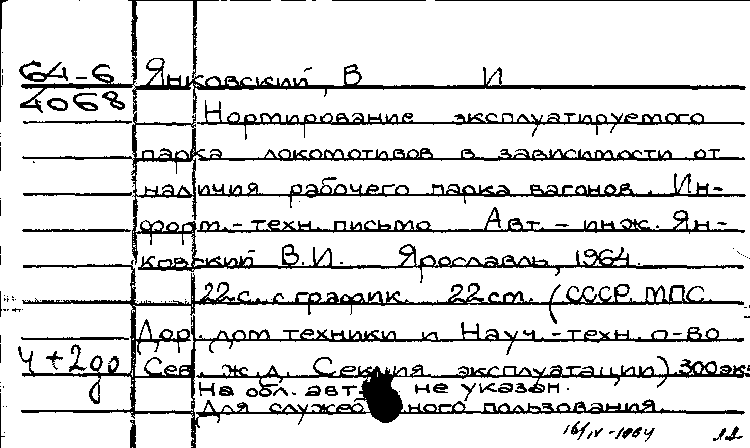 64-6 Янковский, В И
4068 Нормирование эксплуатируемого
парка локомотивов в зависимости от
наличия рабочего парка вагонов. Ин-
форм.-техн. письмо Авт.-инж. Ян-
ковский В.И. Ярославль, 1964.
22с. с график. 22 cm. (СССР. МПС.
Дор. дом техники и Науч.-техн. о-во
Сев. ж.д. Секция эксплуатации) 300 экз
На обл. авт. не указан.
Для служебного пользования.